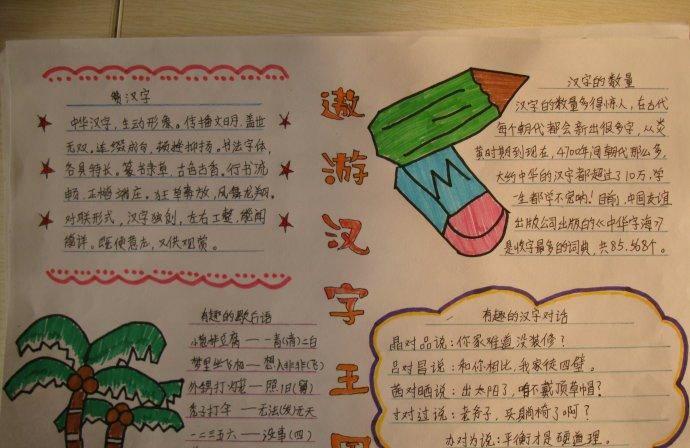 赞汉字
中华汉字，生动形象。传播文明，盖世
无双。连缀成句，顿挫抑扬。书法字体，
各具特长。篆书隶草，古色古香。行书流
畅，正楷端庄。狂草奔放，凤舞龙翔。
对联形式，汉字独创，左右工整，
既使意志，又供观赏。
遨游汉字王国
汉字的数量
汉字的数量多得惊人，在古代
每个朝代都会新出很多字，从炎
黄时期到现在，4700年间朝代那么多，
大约中华的汉字都超过了10万，学
一生都学不完哟！目前，中国友谊
出版公司出版的《中华字海》
是收字最多的词典，共85.568个。
有趣的歇后语
小葱拌豆腐——青(清)二白
梦里坐飞机——想入非非(飞)
外甥打灯笼——照旧(舅)
秃子打伞——无法(发)无天
一二三五六——没事(四)
有趣的汉字对话
晶对品说：你家难道没装修？
吕对昌说：和你相比，我家徒四壁。
茜对晒说：出太阳了，咱不戴顶草帽？
寸对过说：老爷子，买躺椅了啊？
办对为说：平衡才是硬道理。